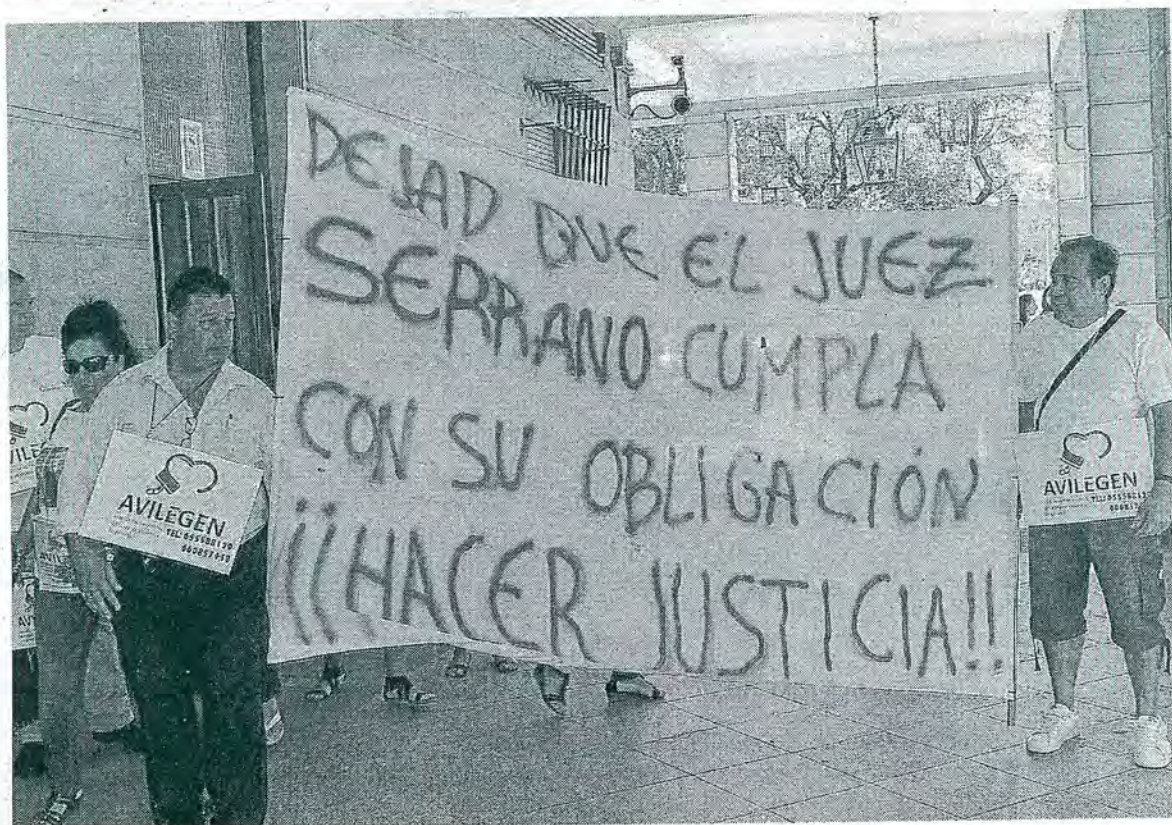 DEJAD QUE EL JUEZ
SERRANO CUMPLA
CON SU OBLIGACIÓN
¡¡HACER JUSTICIA!!
AVILEGEN
AVILEGEN